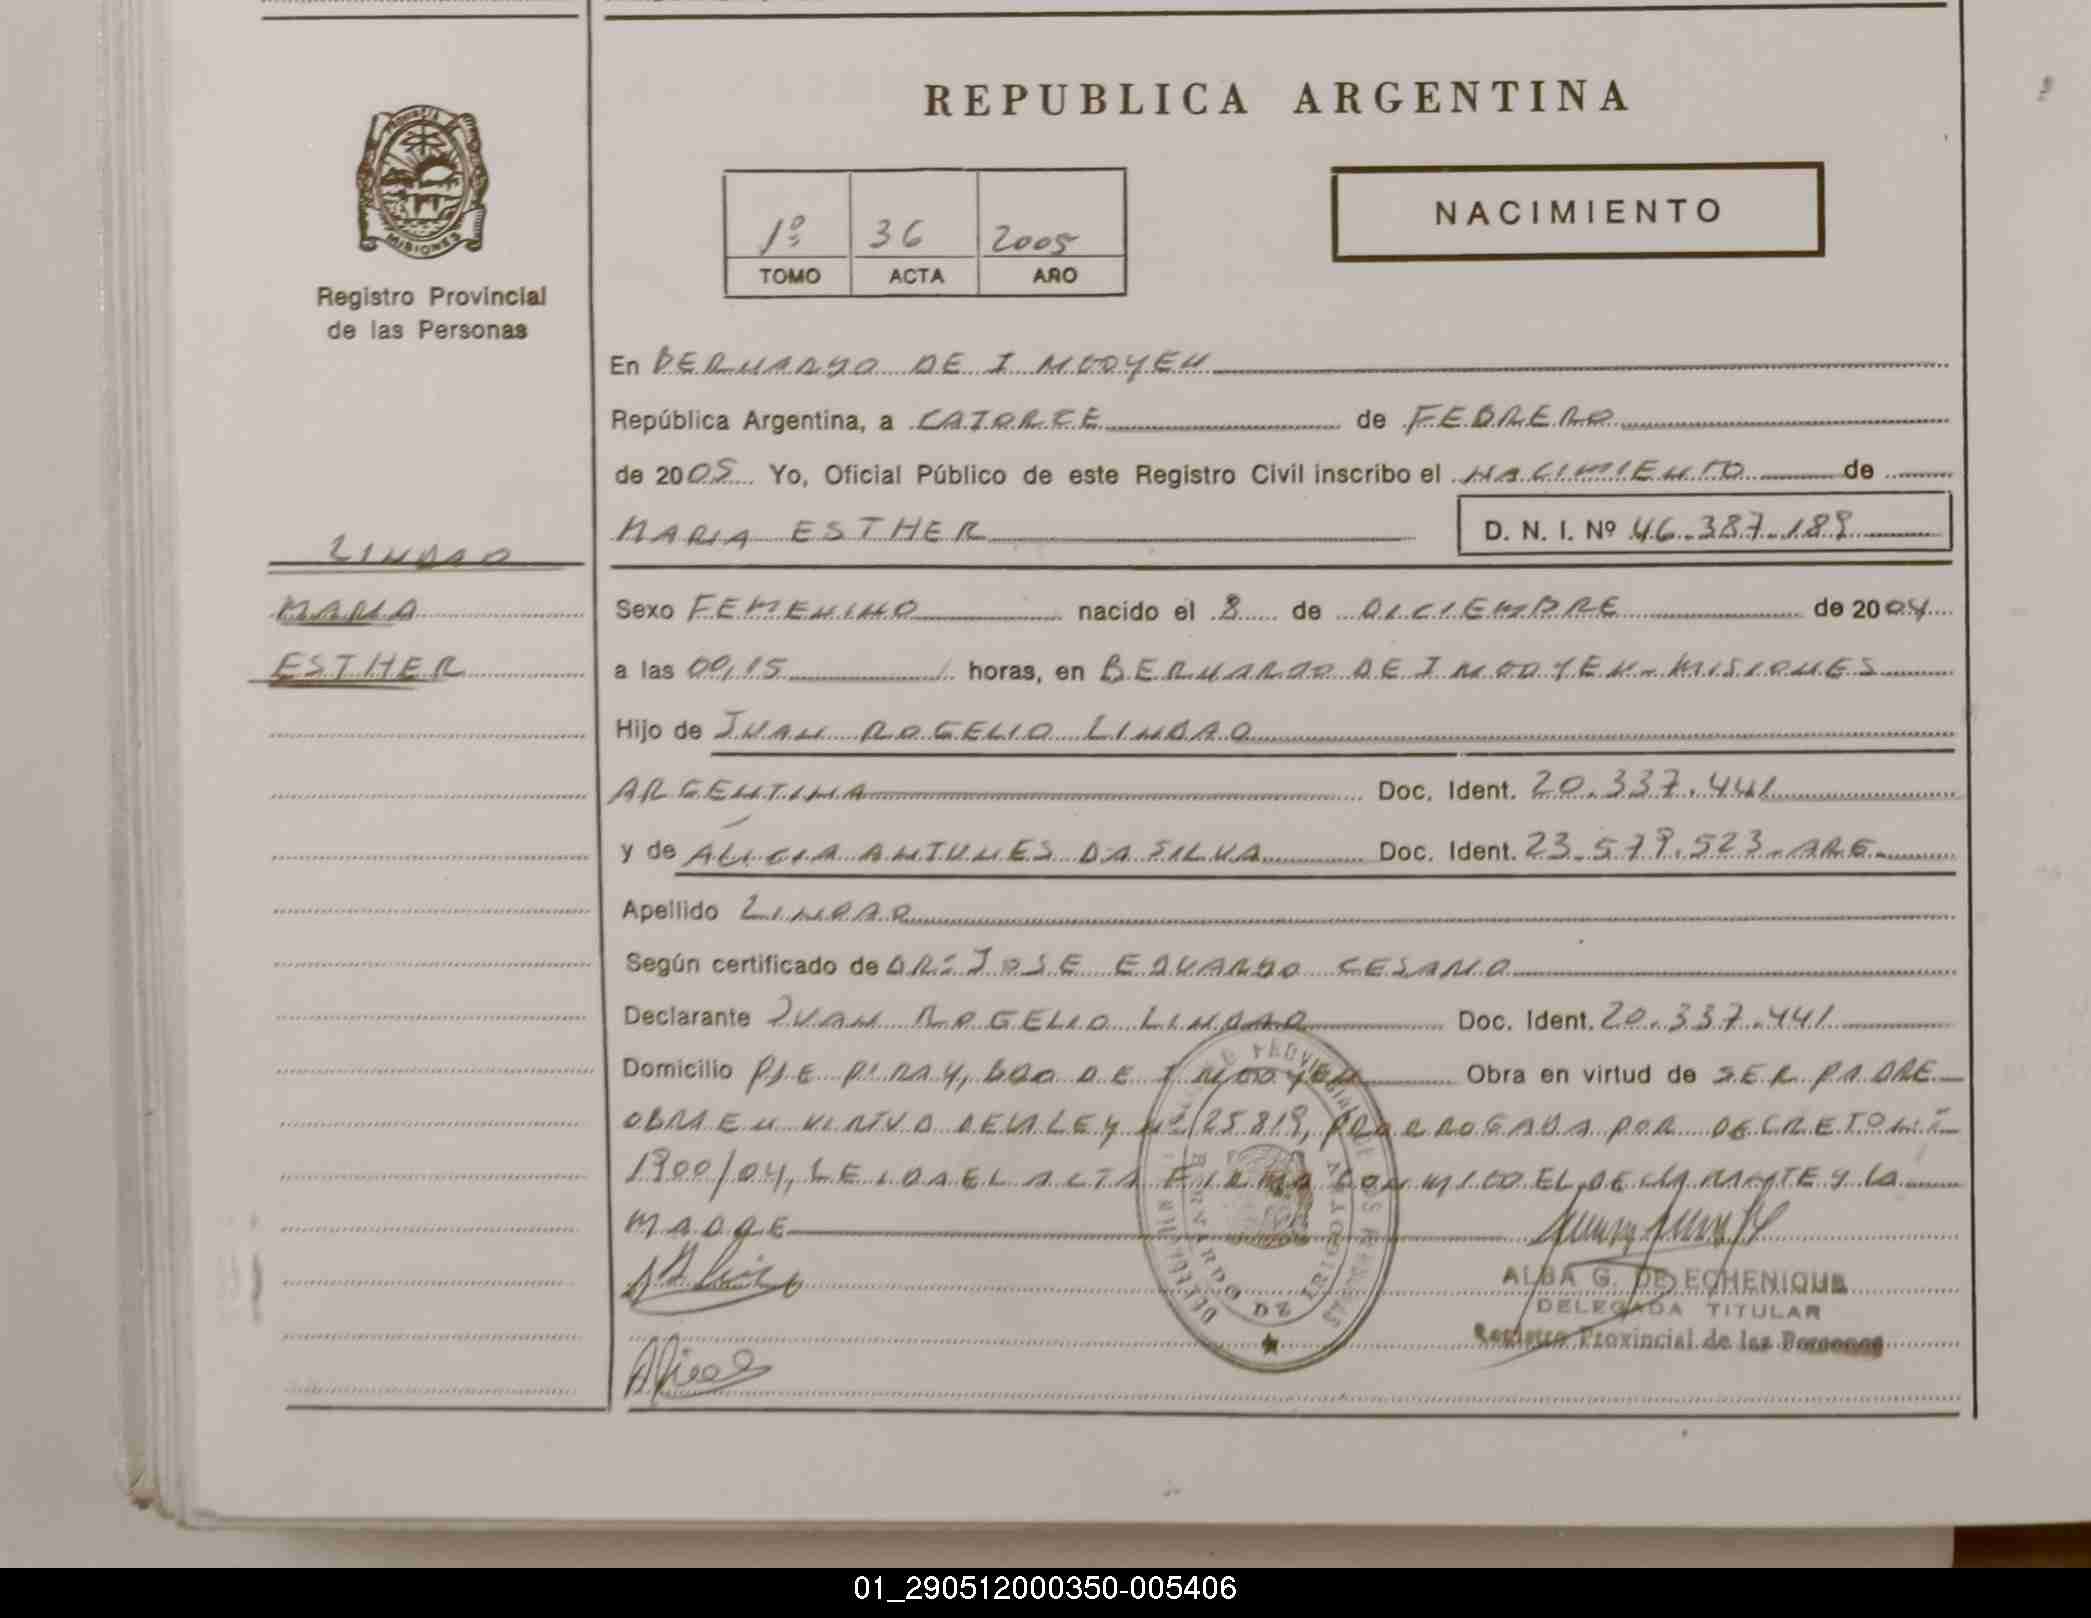 REPUBLICA ARGENTINA
PROVINCIA DE MISIONES
Registro Provincial
de las Personas
1º 36 2005
TOMO ACTA AÑO
NACIMIENTO
En BERNARDO DE IRIGOYEN
República Argentina, a CATORCE de FEBRERO
de 2005 Yo, Oficial Público de este Registro Civil inscribo el NACIMIENTO de
MARIA ESTHER D. N. I. Nº 46.387.189
LINDAO
MARIA
ESTHER
Sexo FEMENINO nacido el 8 de DICIEMBRE de 2004
a las 00,15 horas, en BERNARDO DE IRIGOYEN - MISIONES
Hijo de JUAN ROGELIO LINDAO
ARGENTINA Doc. Ident. 20.337.441
y de ALICIA ANTUNES DA SILVA Doc. Ident. 23.579.523 - ARG.
Apellido LINDAO
Según certificado de DR: JOSE EDUARDO CESARIO
Declarante JUAN ROGELIO LINDAO Doc. Ident. 20.337.441
Domicilio PJE PIRAY, BDO DE IRIGOYEN Obra en virtud de SER PADRE
OBRA EN VIRTUD DE LA LEY Nº 25819, PRORROGADA POR DECRETO Nº
1900/04, LEIDA EL ACTA FIRMA CONMIGO EL DECLARANTE Y LA
MADRE
ALBA G. DE ECHENIQUE
DELEGADA TITULAR
Registro Provincial de las Personas
01_290512000350-005406